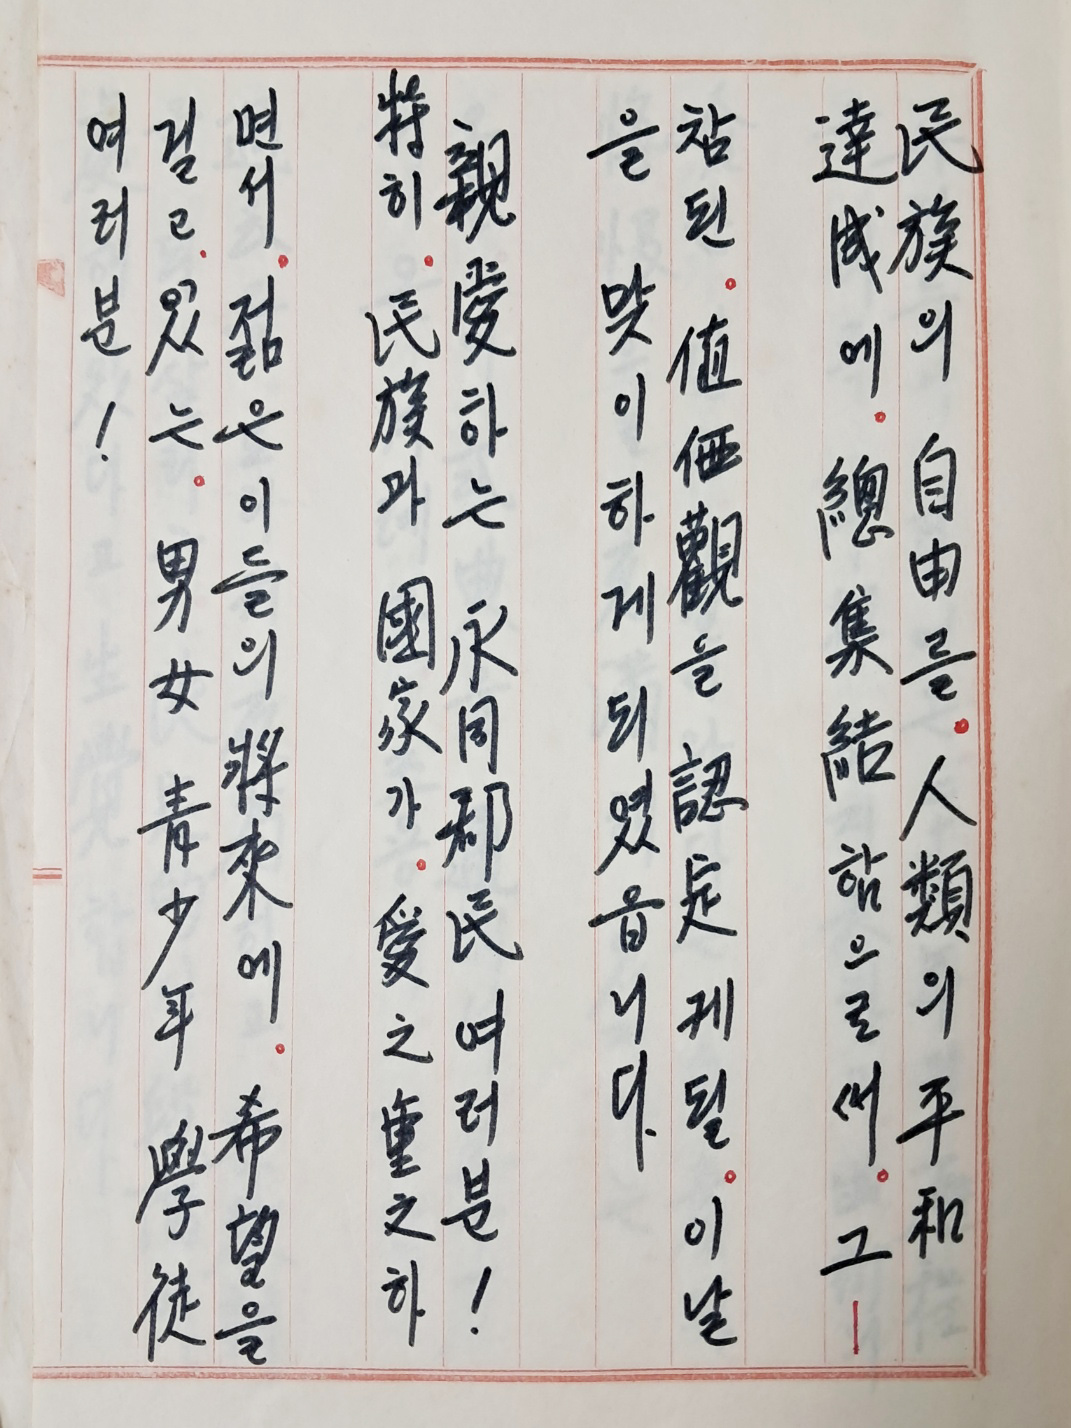 民族의 自由를。人類의 平和
達成에。總集結함으로써。그
참된。値価觀을 認定케될。이날
을 맞이하게 되였읍니다.
親愛하는 永同郡民 여러분!
特히。民族과 國家가。愛之重之하
면서。젊은이들의 將來에。希望을
걸고。있는。男女 靑少年 學徒
여러분!